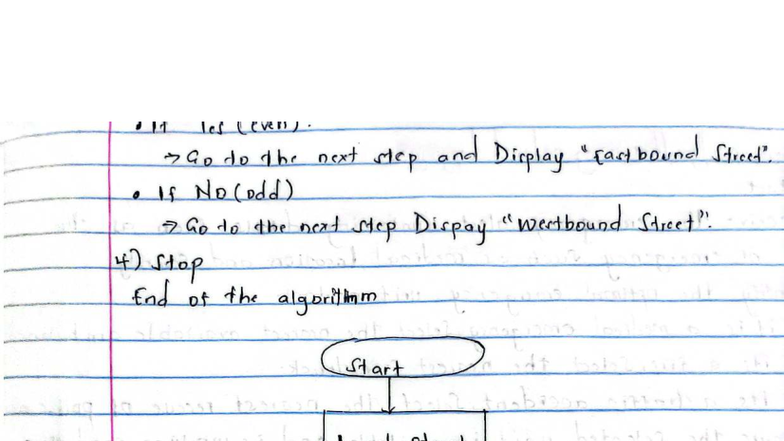 • If Yes (even).
→ Go to the next step and Display "Eastbound Street".
• If No (odd)
→ Go to the next step Dispay "Westbound Street".
4) Stop
End of the algorithm
Start